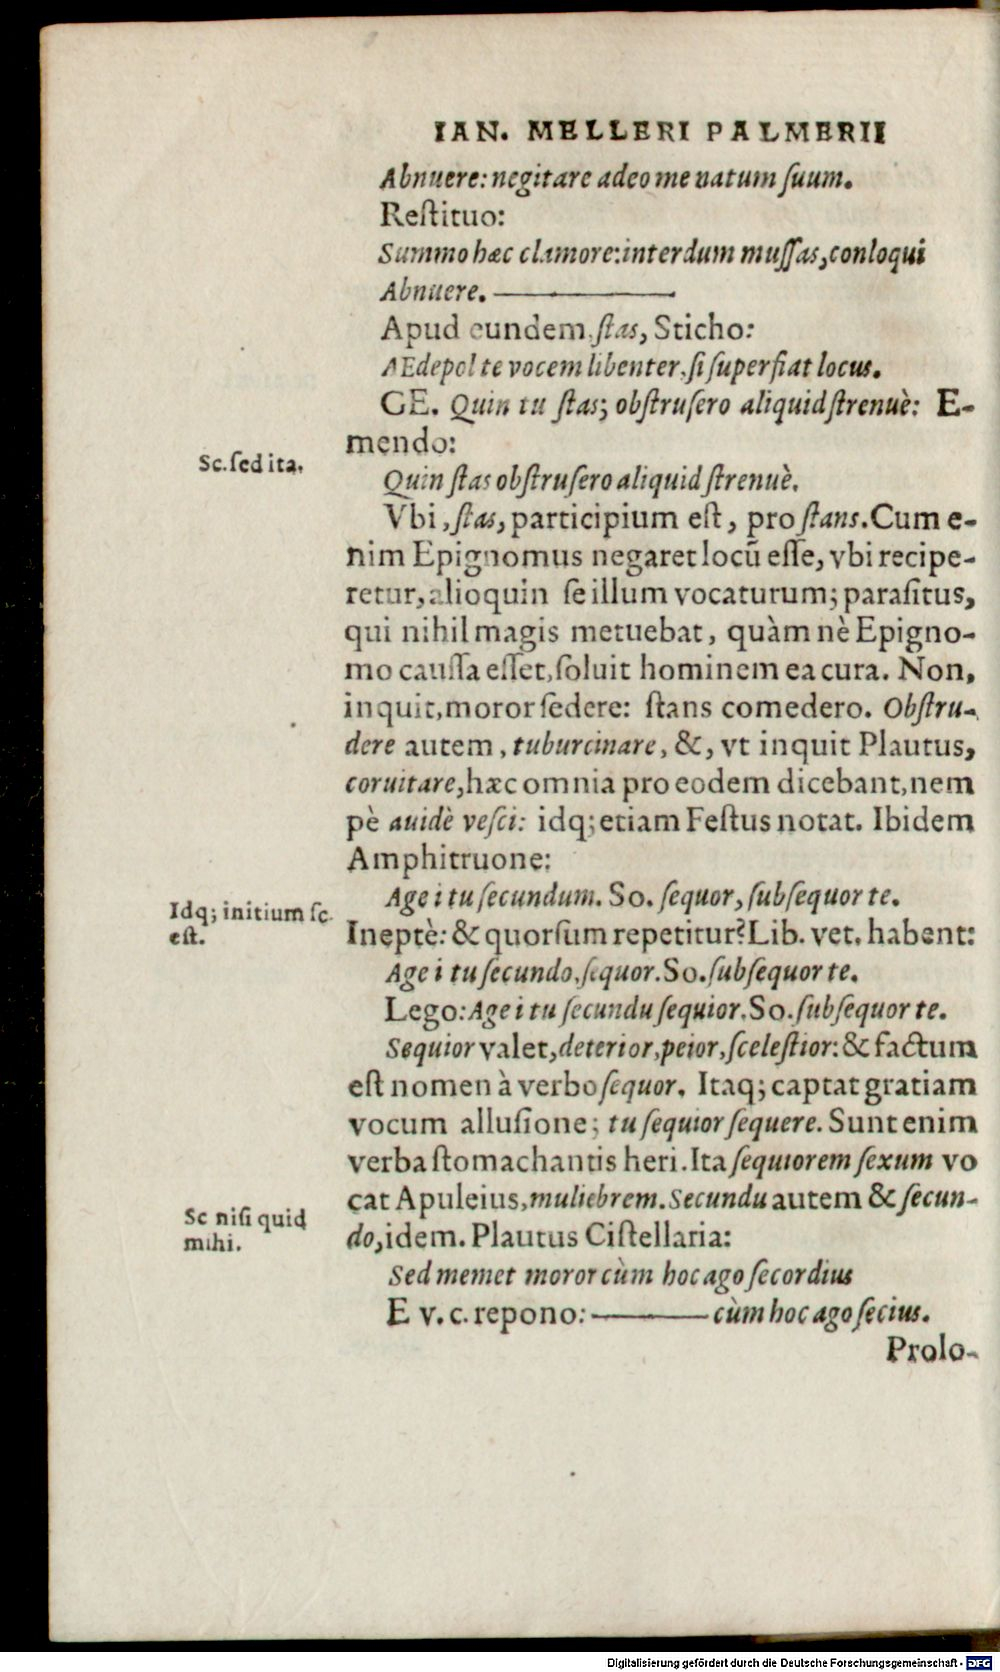 IAN. MELLERI PALMERII
Abnuere: negitare adeo me natum ſuum.
Reſtituo:
Summo hæc clamore: interdum muſſas, conloqui
Abnuere. ————
Apud eundem, ſtas, Sticho:
AEdepol te vocem libenter, ſi ſuperfiat locus.
GE. Quin tu ſtas; obſtruſero aliquid ſtrenuè: E-
mendo:
Sc. ſed ita.
Quin ſtas obſtruſero aliquid ſtrenuè.
Vbi, ſtas, participium eſt, pro ſtans. Cum e-
nim Epignomus negaret locū eſſe, vbi recipe-
retur, alioquin ſe illum vocaturum; paraſitus,
qui nihil magis metuebat, quàm nè Epigno-
mo cauſſa eſſet, ſoluit hominem ea cura. Non,
inquit, moror ſedere: ſtans comedero. Obſtru-
dere autem, tuburcinare, &, vt inquit Plautus,
coruitare, hæc omnia pro eodem dicebant, nem
pè auidè veſci: idq; etiam Feſtus notat. Ibidem
Amphitruone:
Age i tu ſecundum. So. ſequor, ſubſequor te.
Idq; initium ſc.
eſt.
Ineptè: & quorſum repetitur? Lib. vet. habent:
Age i tu ſecundo, ſequor. So. ſubſequor te.
Lego: Age i tu ſecundu ſequior. So. ſubſequor te.
Sequior valet, deterior, peior, ſceleſtior: & factum
eſt nomen à verbo ſequor. Itaq; captat gratiam
vocum alluſione; tu ſequior ſequere. Sunt enim
verba ſtomachantis heri. Ita ſequiorem ſexum vo
cat Apuleius, muliebrem. Secundu autem & ſecun-
do, idem. Plautus Ciſtellaria:
Sc niſi quid
mihi.
Sed memet moror cùm hoc ago ſecordius
E v. c. repono: ———— cùm hoc ago ſecius.
Prolo-
Digitalisierung gefördert durch die Deutsche Forschungsgemeinschaft - DFG